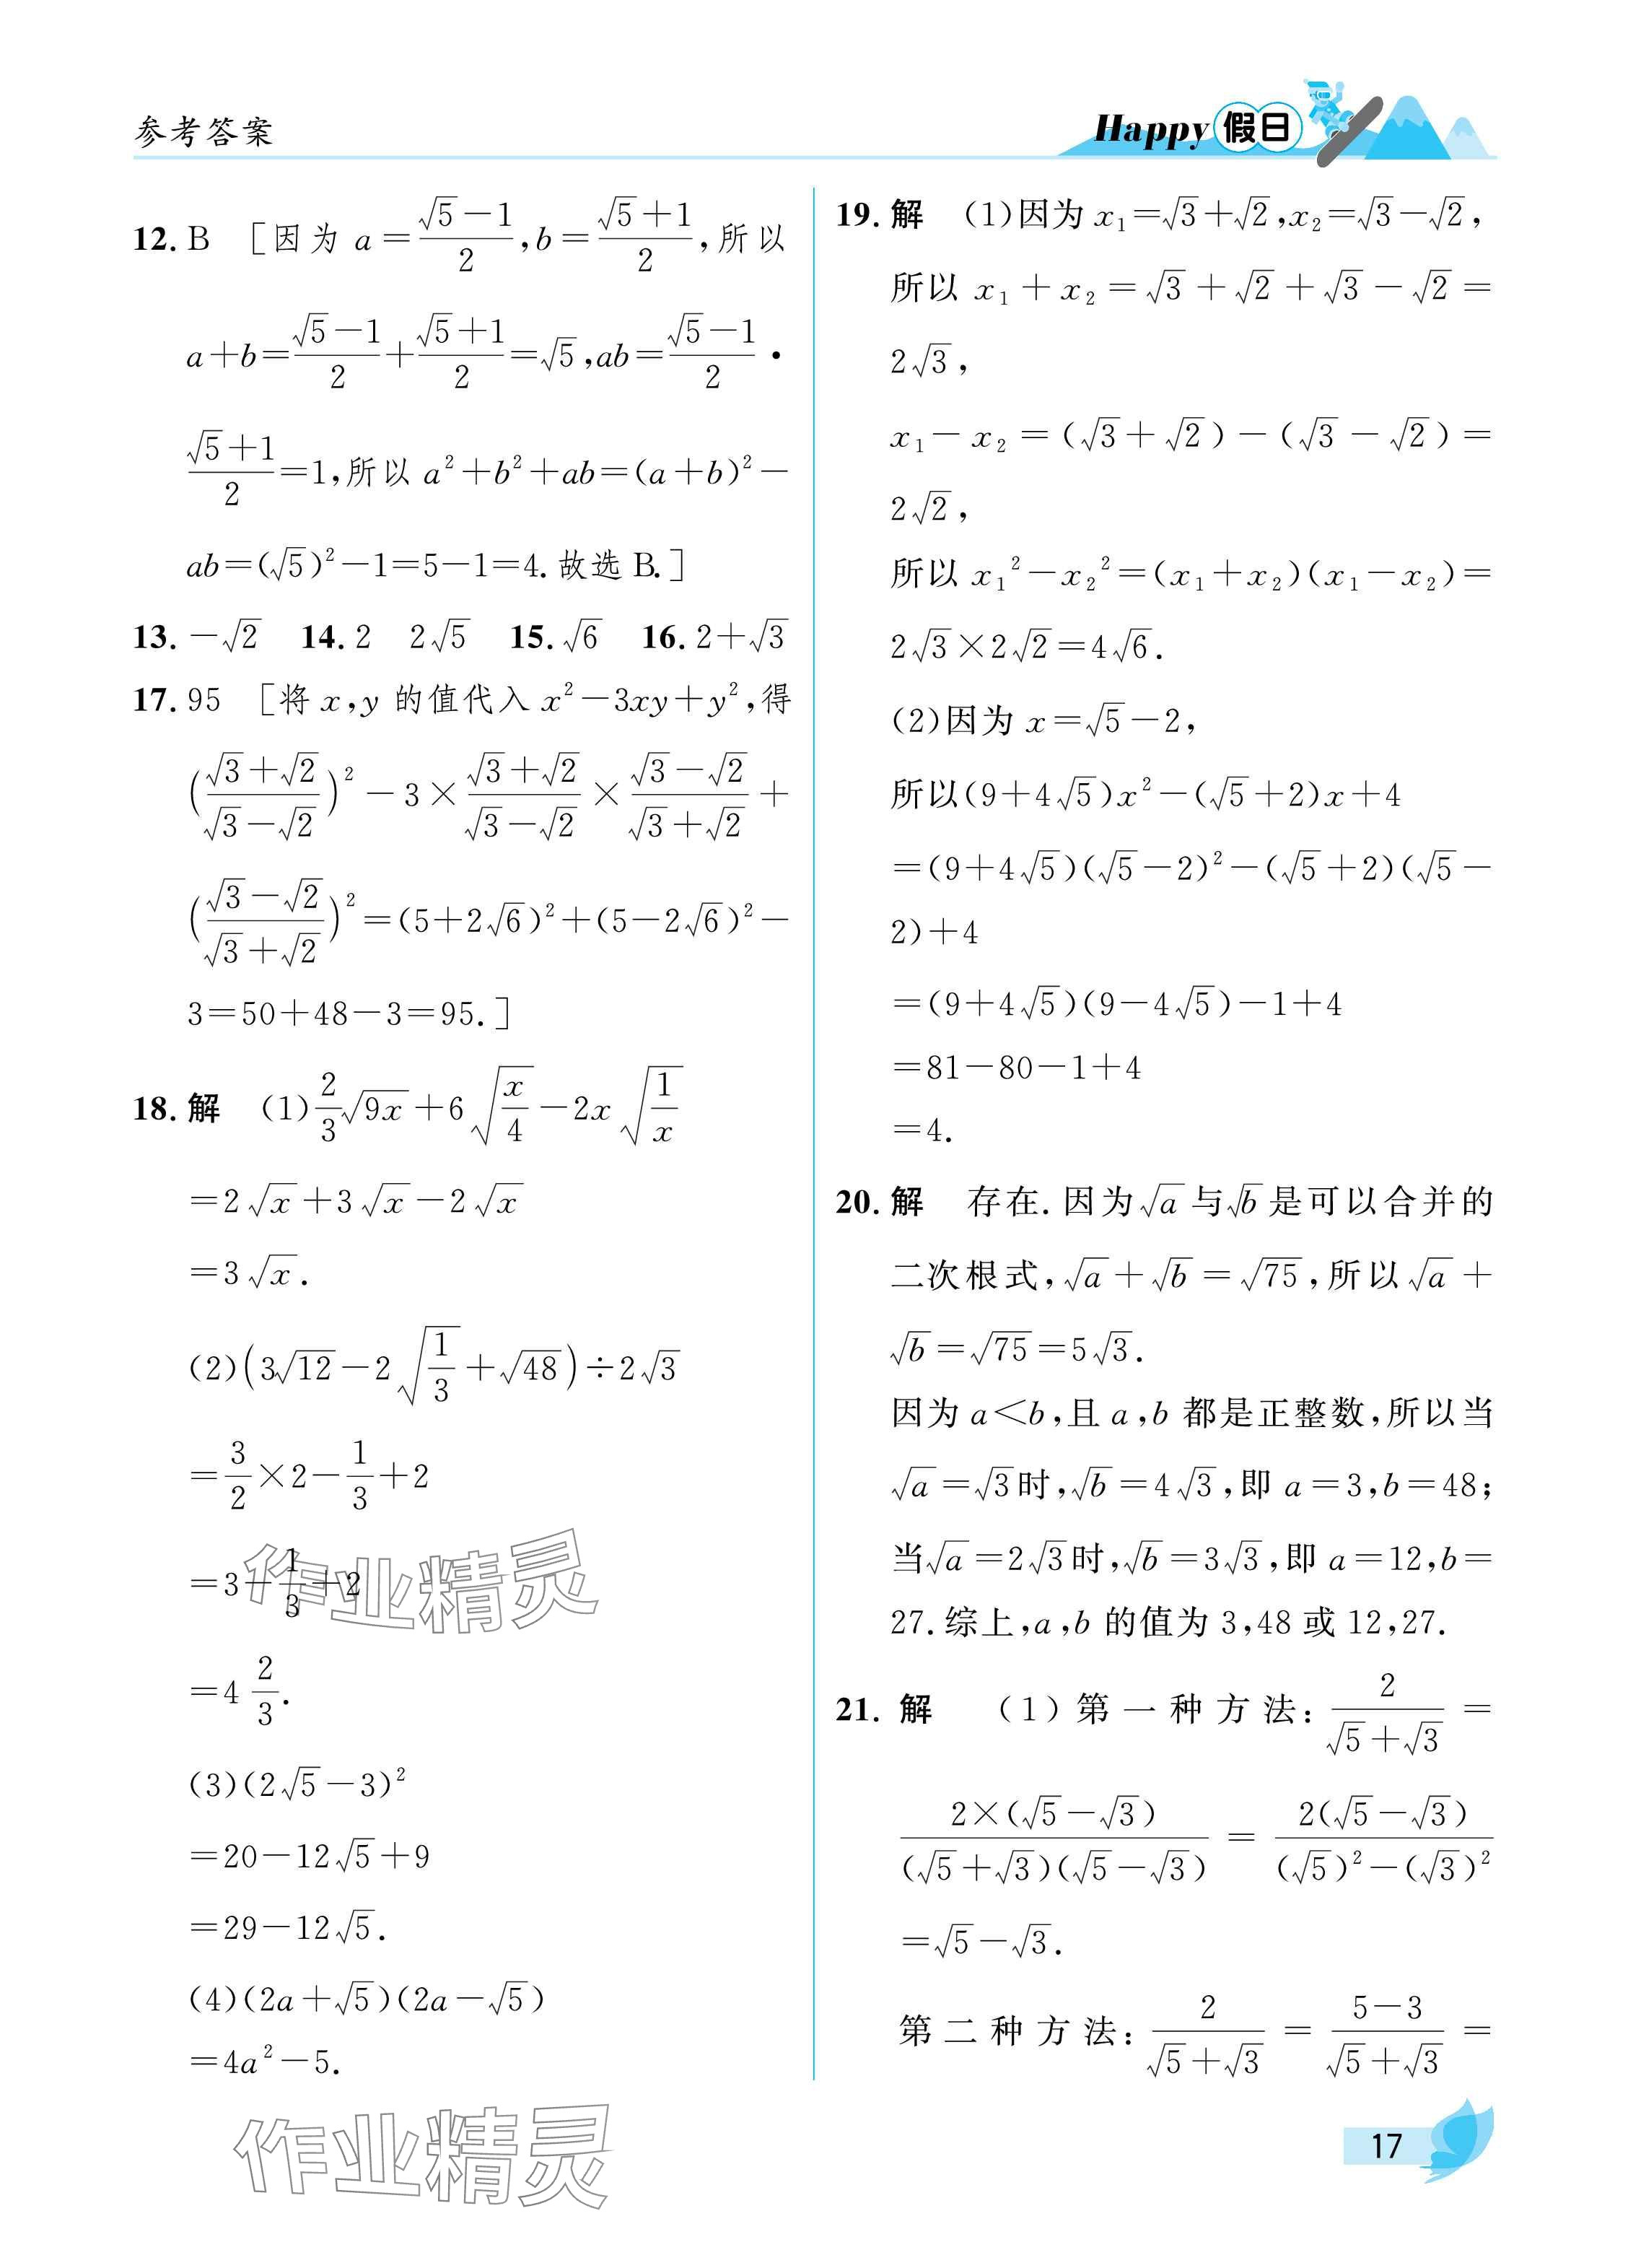 参考答案
Happy假日
12. B [因为 a=(√5-1)/2,b=(√5+1)/2,所以
a+b=(√5-1)/2+(√5+1)/2=√5,ab=(√5-1)/2·
(√5+1)/2=1,所以 a²+b²+ab=(a+b)²-
ab=(√5)²-1=5-1=4.故选 B.]
13. -√2 14. 2 2√5 15. √6 16. 2+√3
17. 95 [将 x,y 的值代入 x²-3xy+y²,得
((√3+√2)/(√3-√2))²-3×(√3+√2)/(√3-√2)×(√3-√2)/(√3+√2)+
((√3-√2)/(√3+√2))²=(5+2√6)²+(5-2√6)²-
3=50+48-3=95.]
18. 解 (1)2/3√(9x)+6√(x/4)-2x√(1/x)
=2√x+3√x-2√x
=3√x.
(2)(3√12-2√(1/3)+√48)÷2√3
=3/2×2-1/3+2
=3-1/3+2
=4 2/3.
(3)(2√5-3)²
=20-12√5+9
=29-12√5.
(4)(2a+√5)(2a-√5)
=4a²-5.
19. 解 (1)因为 x₁=√3+√2,x₂=√3-√2,
所以 x₁+x₂=√3+√2+√3-√2=
2√3,
x₁-x₂=(√3+√2)-(√3-√2)=
2√2,
所以 x₁²-x₂²=(x₁+x₂)(x₁-x₂)=
2√3×2√2=4√6.
(2)因为 x=√5-2,
所以(9+4√5)x²-(√5+2)x+4
=(9+4√5)(√5-2)²-(√5+2)(√5-
2)+4
=(9+4√5)(9-4√5)-1+4
=81-80-1+4
=4.
20. 解 存在.因为√a与√b是可以合并的
二次根式,√a+√b=√75,所以√a+
√b=√75=5√3.
因为 a<b,且 a,b 都是正整数,所以当
√a=√3时,√b=4√3,即 a=3,b=48;
当√a=2√3时,√b=3√3,即 a=12,b=
27.综上,a,b 的值为 3,48 或 12,27.
21. 解 (1)第一种方法:2/(√5+√3)=
2×(√5-√3)/((√5+√3)(√5-√3))=2(√5-√3)/((√5)²-(√3)²)
=√5-√3.
第二种方法:2/(√5+√3)=(5-3)/(√5+√3)=
作业精灵
作业精灵
17